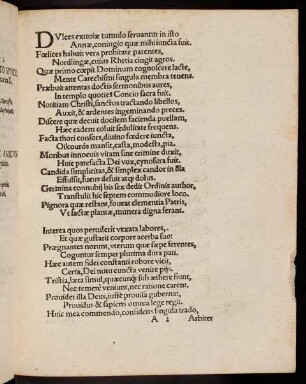 DVlces exuuiæ tumulo seruantur in isto
Annæ, coniugio quæ mihi iuncta fuit.
Fœlices habuit vera probitate parentes,
Nordlingæ, cuius Rhetia cingit agros.
Quæ primo cœpit Dominum cognoscere lacte,
Mente Catechismi singula membra tenens.
Præbuit attentas doctis sermonibus aures,
In templo quoties Concio sacra fuit.
Notitiam Christi, sanctos tractando libellos,
Auxit, & ardentes ingeminando preces.
Discere quæ decuit docilem facienda puellam,
Hæc eadem coluit sedulitate frequens.
Facta thori consors, diuino fœdere iuncta,
Oscoríds mansit, casta, modesta, pia.
Moribus innocuis vitam sine crimine duxit,
Huic patefacta Dei vox, cynosura fuit.
Candida simplicitas, & simplex candor in illa
Effulsit, fucus defuit atq; dolus.
Germina connubij bis sex dedit Ordinis author,
Transtulit hic septem commodiore loco.
Pignora quæ restant, foueat clementia Patris,
Vt sactæ plantæ, munera digna ferant.
Interea quos pertulerit vexata labores,
Et quæ gustarit corpore acerba suo:
Prægnantes norint, vterum quæ sæpe ferentes,
Coguntur semper plurima dura pati.
Hæc autem fidei constanti robore vicit,
Certa, Dei nutu cuncta venire pijs.
Tristia, læta simul, quæcunq; sub æthere fiunt,
Nec temere veniunt, nec ratione carent.
Prouidet illa Deus, iuste prouisa gubernat,
Prouidus & sapiens omnia lege regit.
Huic mea commendo, confidens singula trado,
A 2 Arbiter